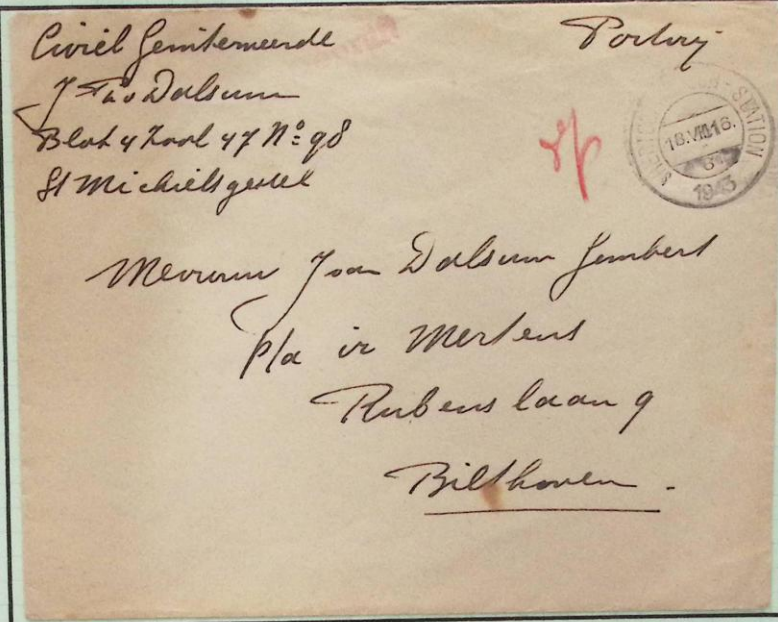 Civiel Geinterneerde
Portvrij
J Th v Dalsum
Blok 4 Zaal 47 Nº 98
St Michielsgestel
STATION
18.VIII 16.
1943
Mevrouw J van Dalsum Gembert
p/a ir Mertens
Rubenslaan 9
Bilthoven.